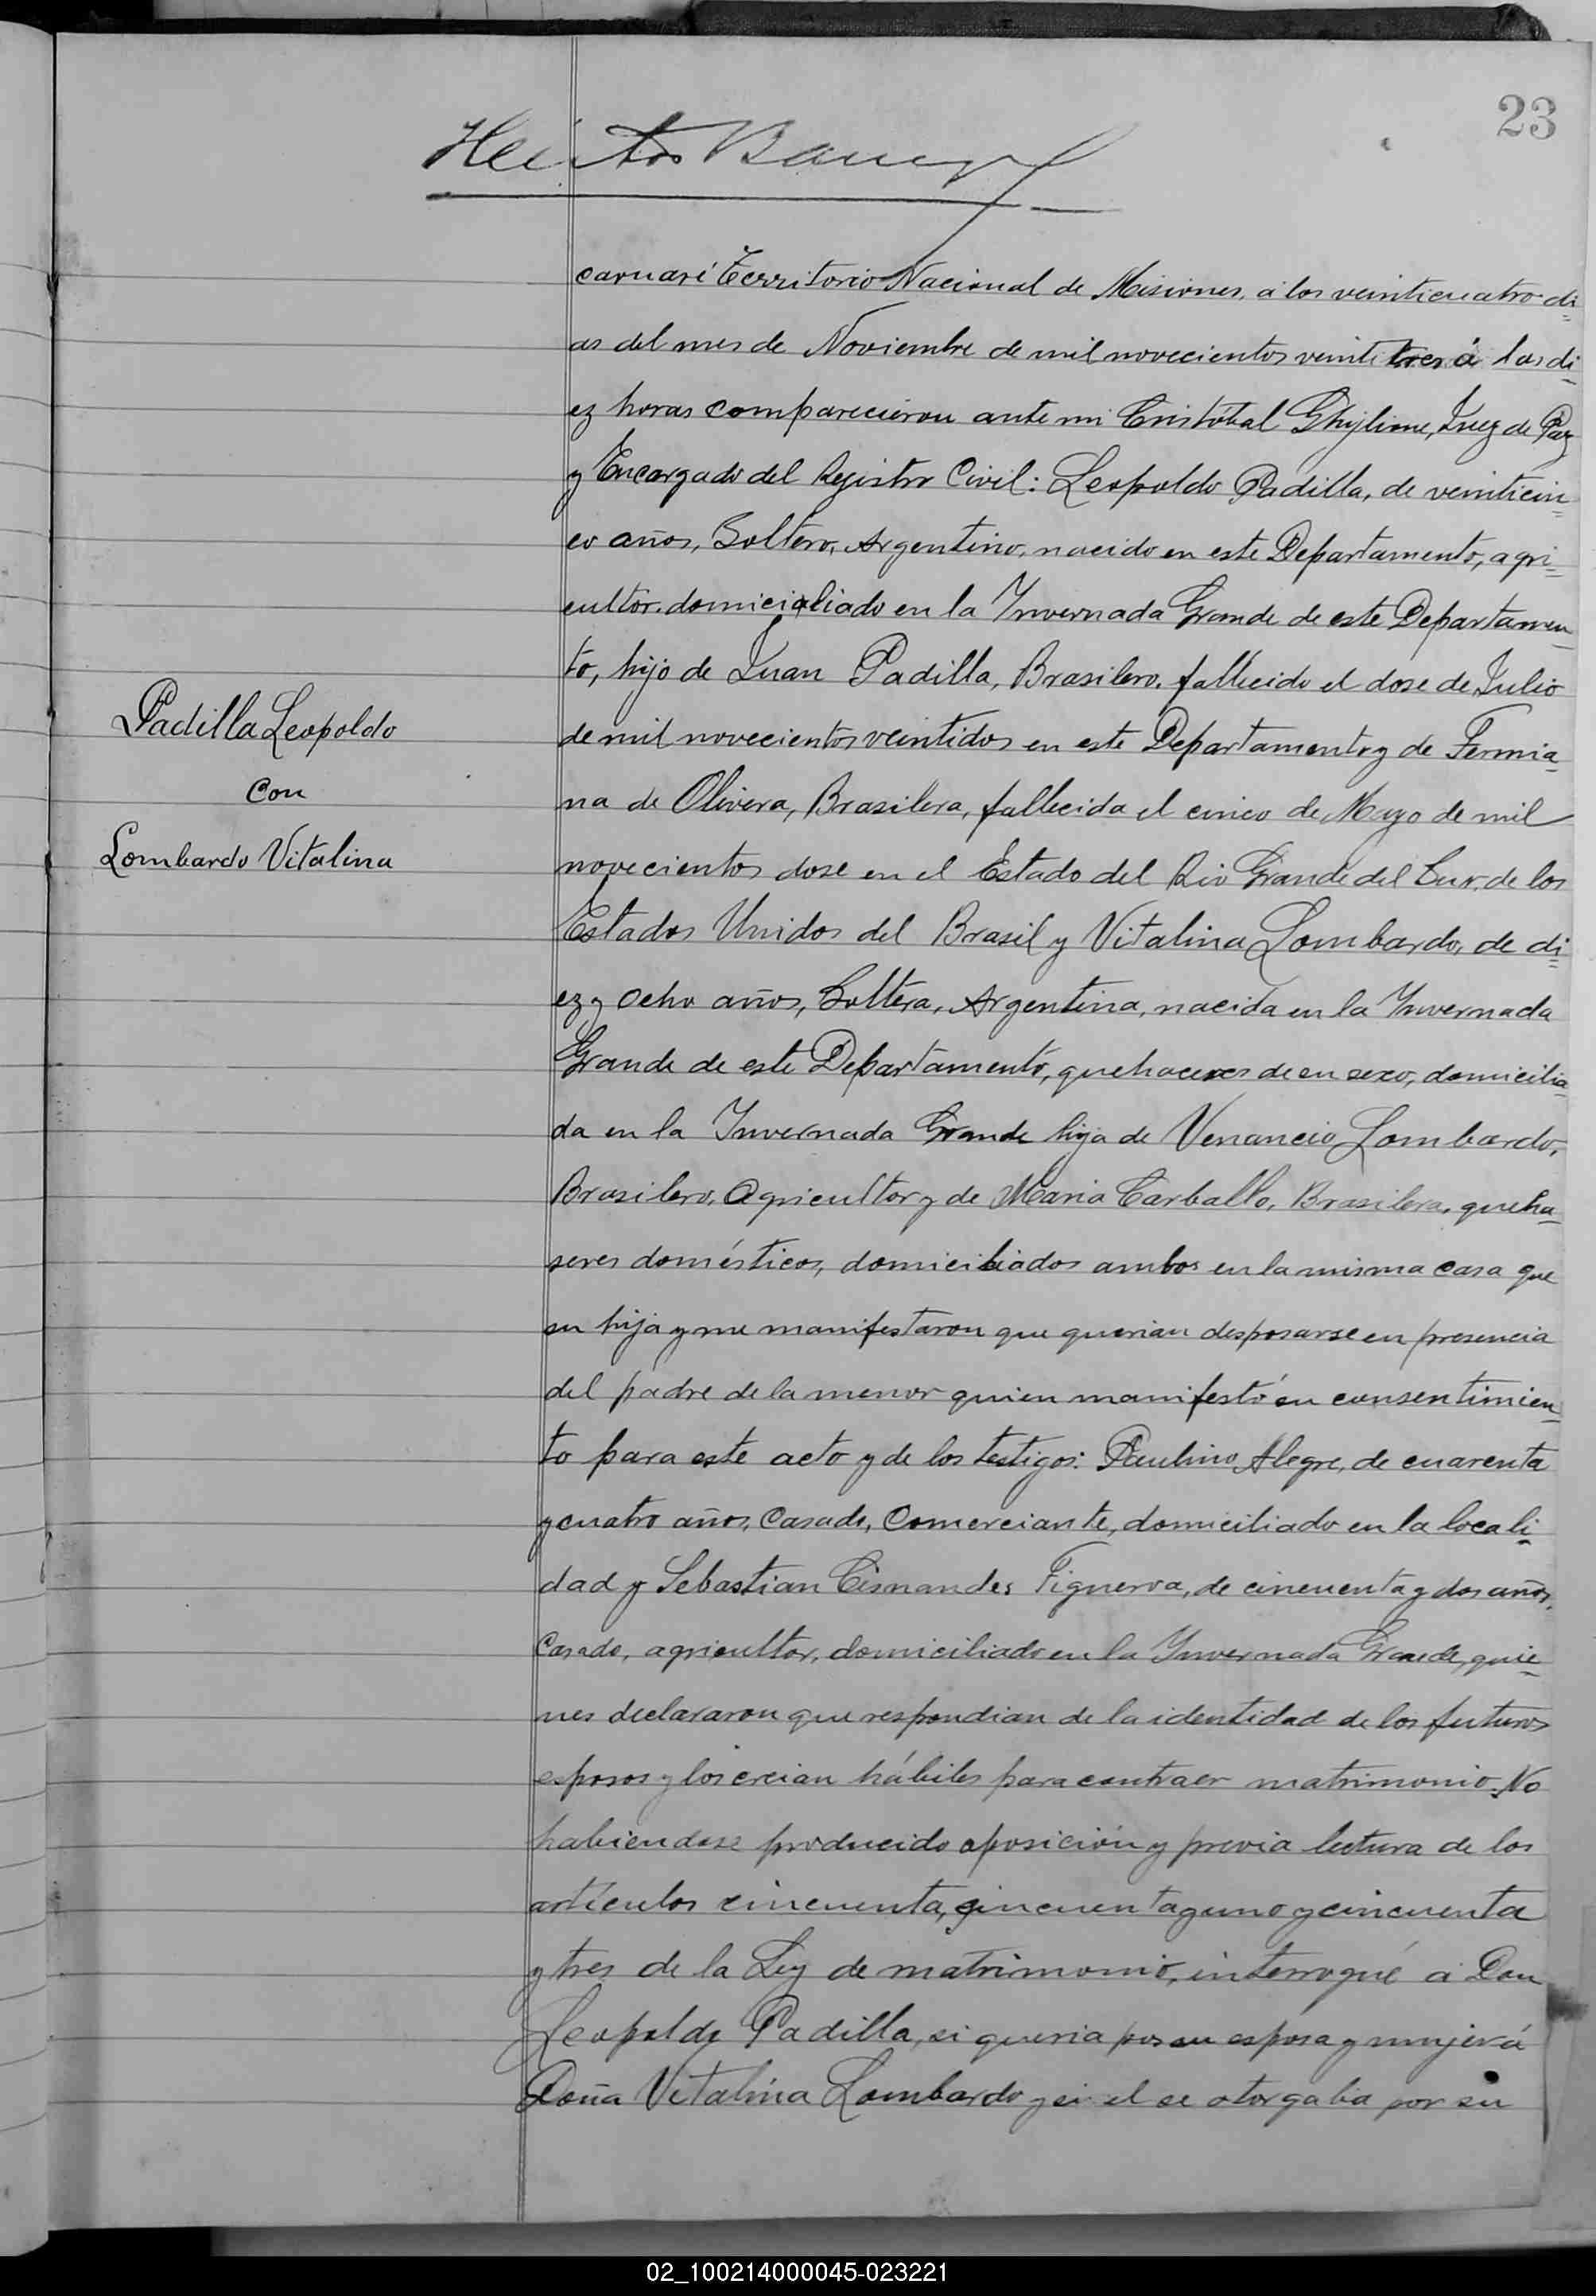 23
caruaré Territorio Nacional de Misiones, á los veinticuatro di
as del mes de Noviembre de mil novecientos veintitres á las di
ez horas comparecieron ante mi Cristóbal Ghiglione, Juez de Paz
y Encargado del Registro Civil: Leopoldo Padilla, de veinticin
co años, Soltero, Argentino, nacido en este Departamento, agri
cultor, domicialiado en la Ynvernada Grande de este Departamen
to, hijo de Juan Padilla, Brasilero, fallecido el dose de Julio
Padilla Leopoldo
con
Lombardo Vitalina
de mil novecientos veintidos en este Departamento y de Fermia
na de Olivera, Brasilera, fallecida el cinco de Mayo de mil
novecientos dose en el Estado del Rio Grande del Sur, de los
Estados Unidos del Brasil y Vitalina Lombardo, de di
ez y ocho años, Soltera, Argentina, nacida en la Ynvernada
Grande de este Departamento, quehaceres de su sexo, domicilia
da en la Ynvernada Grande hija de Venancio Lombardo,
Brasilero, Agricultor y de Maria Carballo, Brasilera, queha
seres domésticos, domiciliados ambos en la misma casa que
su hija y me manifestaron que querian desposarse en presencia
del padre de la menor quien manifestó su consentimien
to para este acto y de los testigos: Paulino Alegre, de cuarenta
y cuatro años, Casado, Comerciante, domiciliado en la locali
dad y Sebastian Cisnandes Figueroa, de cincuenta y dos años,
Casado, agricultor, domiciliado en la Ynvernada Grande, quie
nes declararon que respondian de la identidad de los futuros
esposos y los creian hábiles para contraer matrimonio. No
habiendose producido oposición y previa lectura de los
artículos cincuenta, cincuenta y uno y cincuenta
y tres de la Ley de matrimonio, interrogué á Don
Leopoldo Padilla, si queria por su esposa y mujer á
Doña Vitalina Lombardo y si el se otorgaba por su
02_100214000045-023221